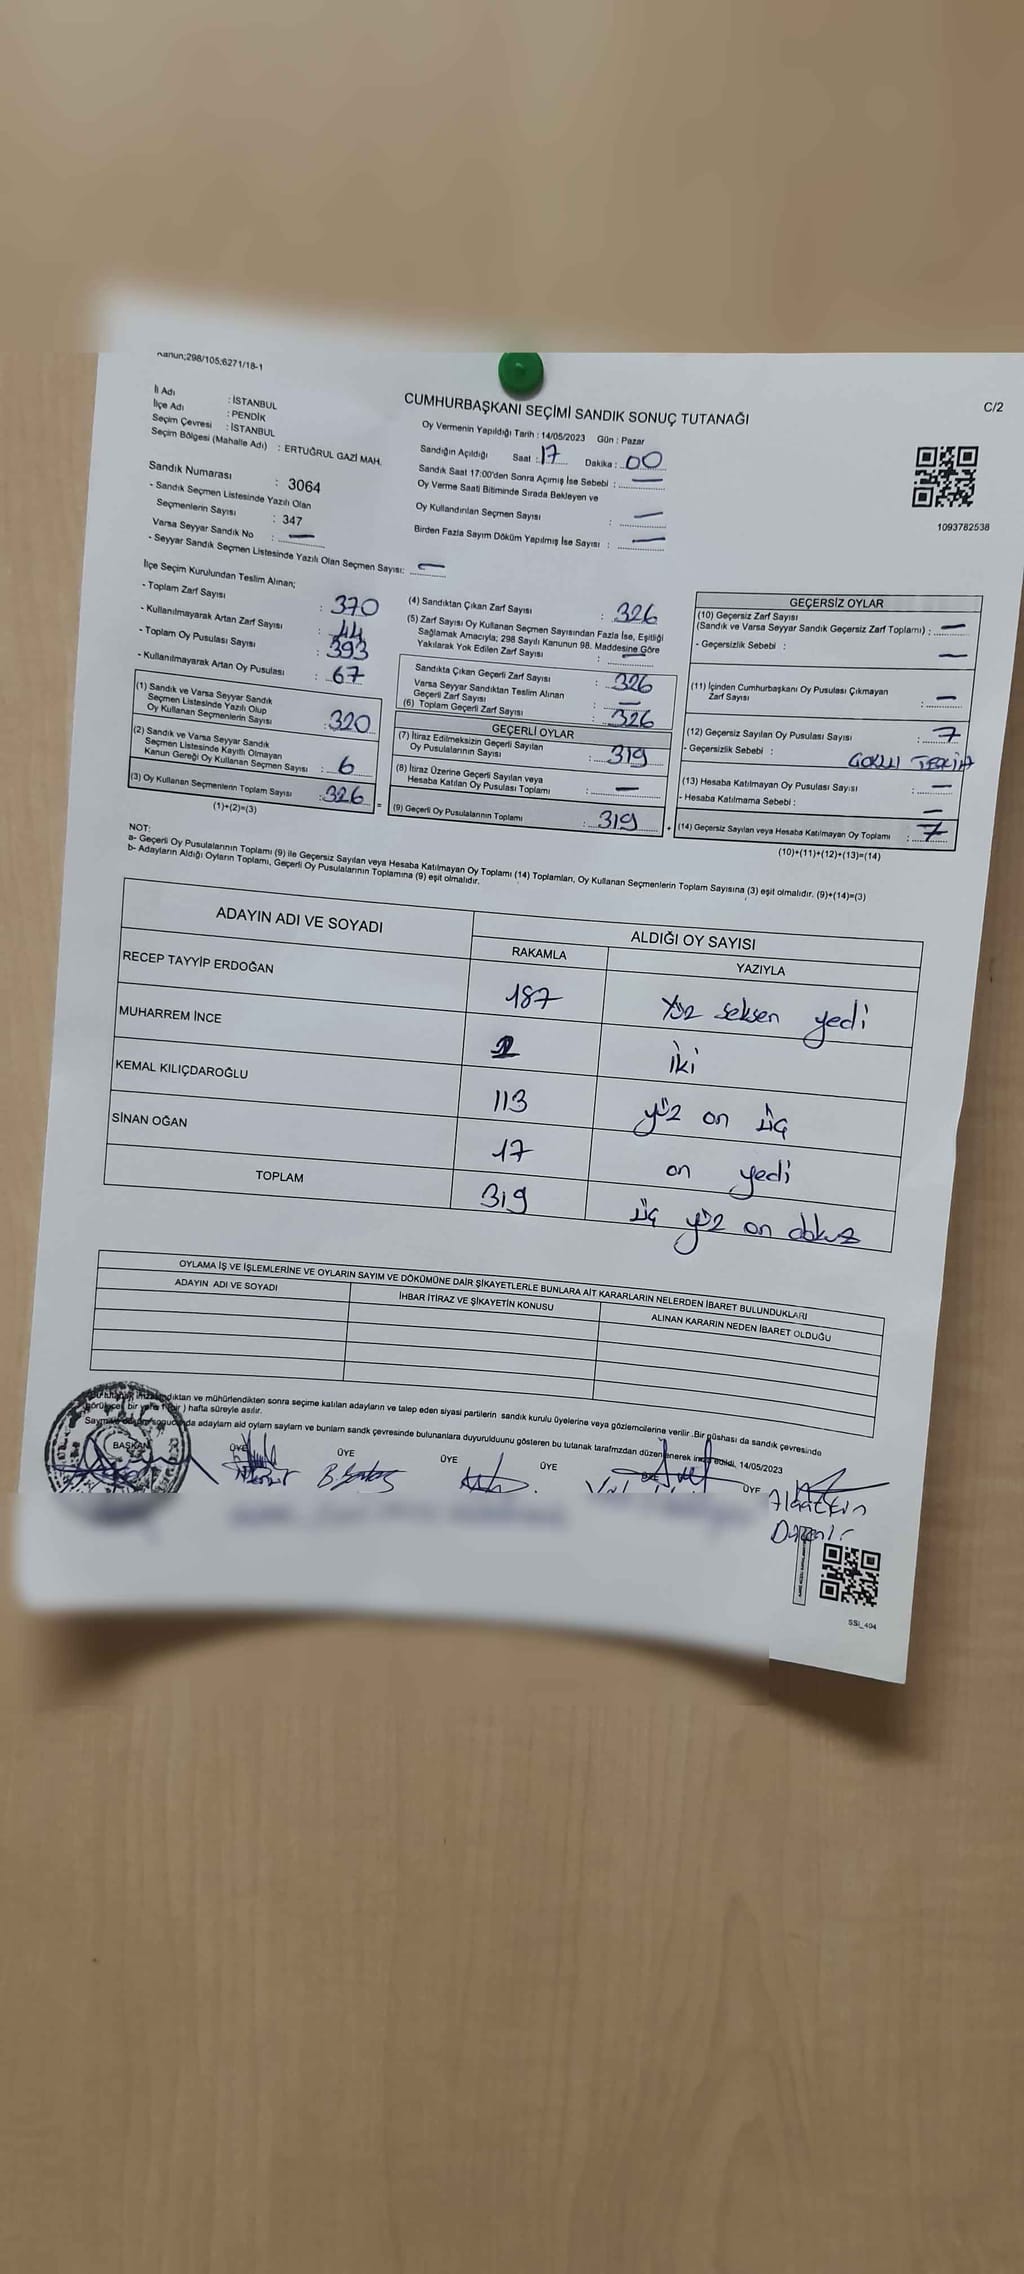 Kanun;298/105;6271/18-1
C/2
İl Adı : İSTANBUL
İlçe Adı : PENDİK
Seçim Çevresi : İSTANBUL
Seçim Bölgesi (Mahalle Adı) : ERTUĞRUL GAZİ MAH.
Sandık Numarası : 3064
- Sandık Seçmen Listesinde Yazılı Olan
Seçmenlerin Sayısı : 347
Varsa Seyyar Sandık No : —
- Seyyar Sandık Seçmen Listesinde Yazılı Olan Seçmen Sayısı: —
CUMHURBAŞKANI SEÇİMİ SANDIK SONUÇ TUTANAĞI
Oy Vermenin Yapıldığı Tarih : 14/05/2023 Gün : Pazar
Sandığın Açıldığı Saat : 17 Dakika : 00
Sandık Saat 17:00'den Sonra Açımış İse Sebebi : —
Oy Verme Saati Bitiminde Sırada Bekleyen ve
Oy Kullandırılan Seçmen Sayısı : —
Birden Fazla Sayım Döküm Yapılmış İse Sayısı : —
1093782538
İlçe Seçim Kurulundan Teslim Alınan;
- Toplam Zarf Sayısı : 370
- Kullanılmayarak Artan Zarf Sayısı : 44
- Toplam Oy Pusulası Sayısı : 393
- Kullanılmayarak Artan Oy Pusulası : 67
(1) Sandık ve Varsa Seyyar Sandık
Seçmen Listesinde Yazılı Olup
Oy Kullanan Seçmenlerin Sayısı : 320
(2) Sandık ve Varsa Seyyar Sandık
Seçmen Listesinde Kayıtlı Olmayan
Kanun Gereği Oy Kullanan Seçmen Sayısı : 6
(3) Oy Kullanan Seçmenlerin Toplam Sayısı : 326 =
(1)+(2)=(3)
(4) Sandıktan Çıkan Zarf Sayısı : 326
(5) Zarf Sayısı Oy Kullanan Seçmen Sayısından Fazla İse, Eşitliği
Sağlamak Amacıyla; 298 Sayılı Kanunun 98. Maddesine Göre
Yakılarak Yok Edilen Zarf Sayısı : —
Sandıkta Çıkan Geçerli Zarf Sayısı : 326
Varsa Seyyar Sandıktan Teslim Alınan
Geçerli Zarf Sayısı : —
(6) Toplam Geçerli Zarf Sayısı : 326
GEÇERLİ OYLAR
(7) İtiraz Edilmeksizin Geçerli Sayılan
Oy Pusulalarının Sayısı : 319
(8) İtiraz Üzerine Geçerli Sayılan veya
Hesaba Katılan Oy Pusulası Toplamı : —
(9) Geçerli Oy Pusulalarının Toplamı : 319 +
GEÇERSİZ OYLAR
(10) Geçersiz Zarf Sayısı
(Sandık ve Varsa Seyyar Sandık Geçersiz Zarf Toplamı) : —
- Geçersizlik Sebebi : —
(11) İçinden Cumhurbaşkanı Oy Pusulası Çıkmayan
Zarf Sayısı : —
(12) Geçersiz Sayılan Oy Pusulası Sayısı : 7
- Geçersizlik Sebebi :
(13) Hesaba Katılmayan Oy Pusulası Sayısı : —
- Hesaba Katılmama Sebebi : —
(14) Geçersiz Sayılan veya Hesaba Katılmayan Oy Toplamı : 7
(10)+(11)+(12)+(13)=(14)
NOT:
a- Geçerli Oy Pusulalarının Toplamı (9) ile Geçersiz Sayılan veya Hesaba Katılmayan Oy Toplamı (14) Toplamları, Oy Kullanan Seçmenlerin Toplam Sayısına (3) eşit olmalıdır. (9)+(14)=(3)
b- Adayların Aldığı Oyların Toplamı, Geçerli Oy Pusulalarının Toplamına (9) eşit olmalıdır.
ADAYIN ADI VE SOYADI ALDIĞI OY SAYISI
RAKAMLA YAZIYLA
RECEP TAYYİP ERDOĞAN 187 Yüz seksen yedi
MUHARREM İNCE 2 iki
KEMAL KILIÇDAROĞLU 113 yüz on üç
SİNAN OĞAN 17 on yedi
TOPLAM 319 üç yüz on dokuz
OYLAMA İŞ VE İŞLEMLERİNE VE OYLARIN SAYIM VE DÖKÜMÜNE DAİR ŞİKAYETLERLE BUNLARA AİT KARARLARIN NELERDEN İBARET BULUNDUKLARI
ADAYIN ADI VE SOYADI İHBAR İTİRAZ VE ŞİKAYETİN KONUSU ALINAN KARARIN NEDEN İBARET OLDUĞU
tutanak imzalandıktan ve mühürlendikten sonra seçime katılan adayların ve talep eden siyasi partilerin sandık kurulu üyelerine veya gözlemcilerine verilir .Bir nüshası da sandık çevresinde
görülecek bir yere 1 (bir ) hafta süreyle asılır.
adayların ald oyların sayların ve bunların sandk çevresinde bulunanlara duyurulduunu gösteren bu tutanak tarafmzdan düzenlenerek edildi, 14/05/2023
BAŞKAN ÜYE ÜYE ÜYE ÜYE ÜYE
Alaattin
SSİ_404